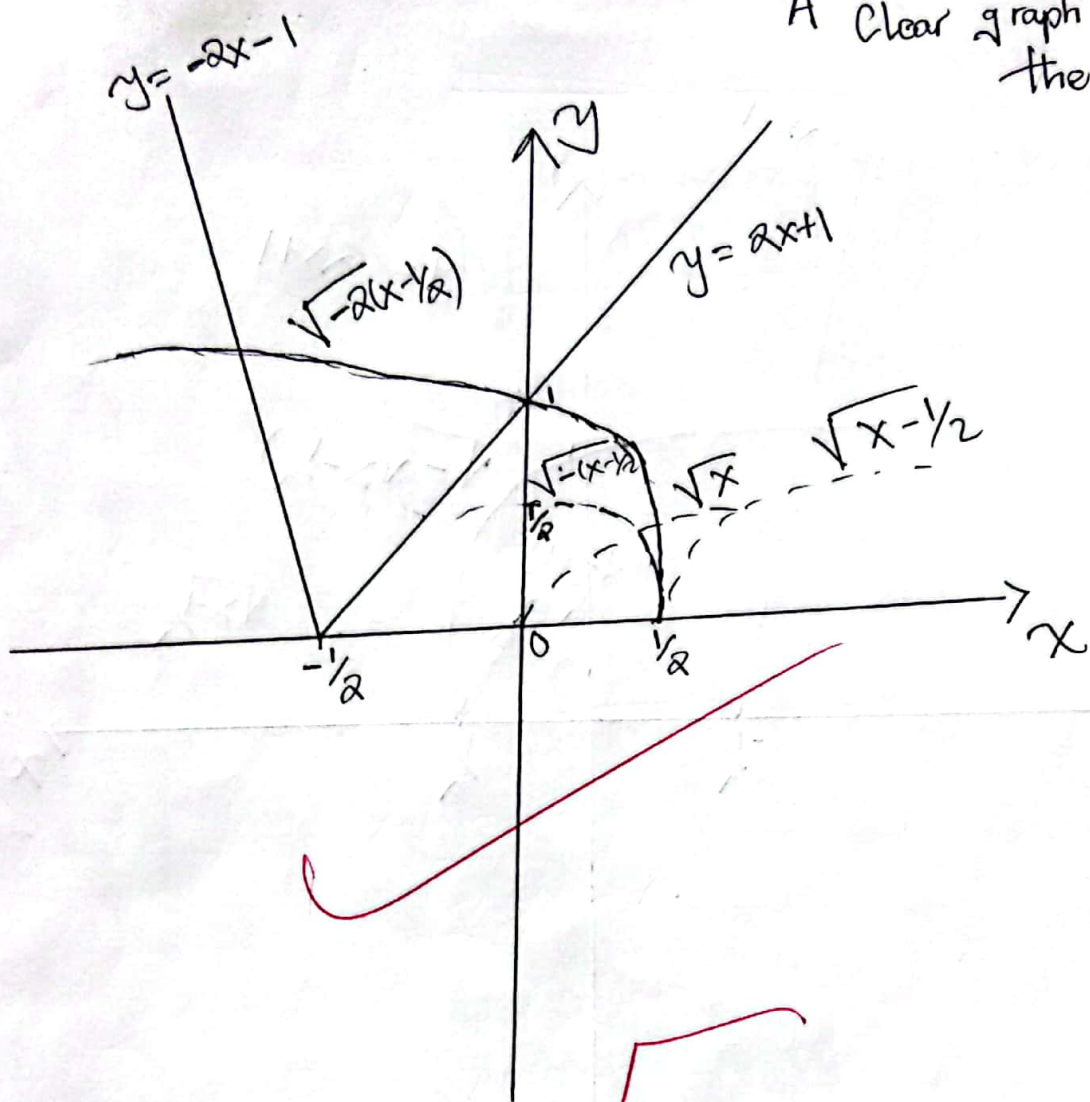 A Clear graph
the
y= -2x-1
y
y = 2x+1
√-2(x-1/2)
1
√x-1/2
√-(x-1/2)
√x
0
1/2
-1/2
x